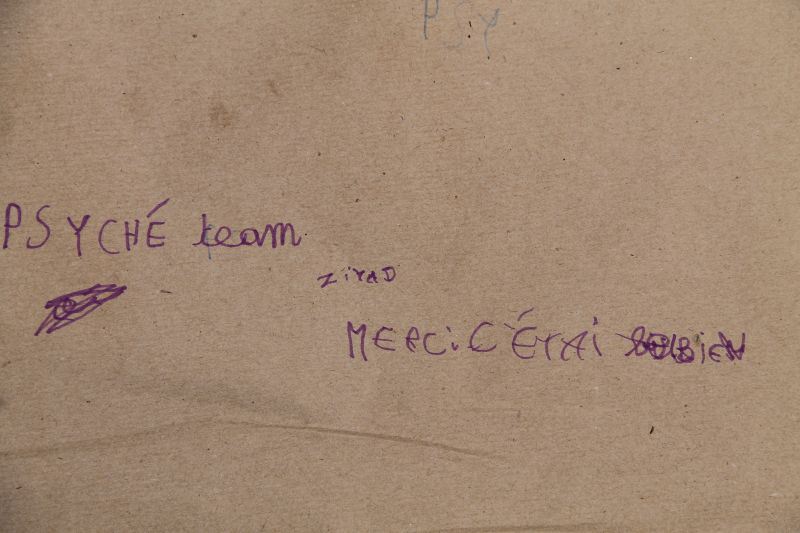 PSY
PSYCHÉ team
ZIYAD
MERCi C'ÉTAi BiEN